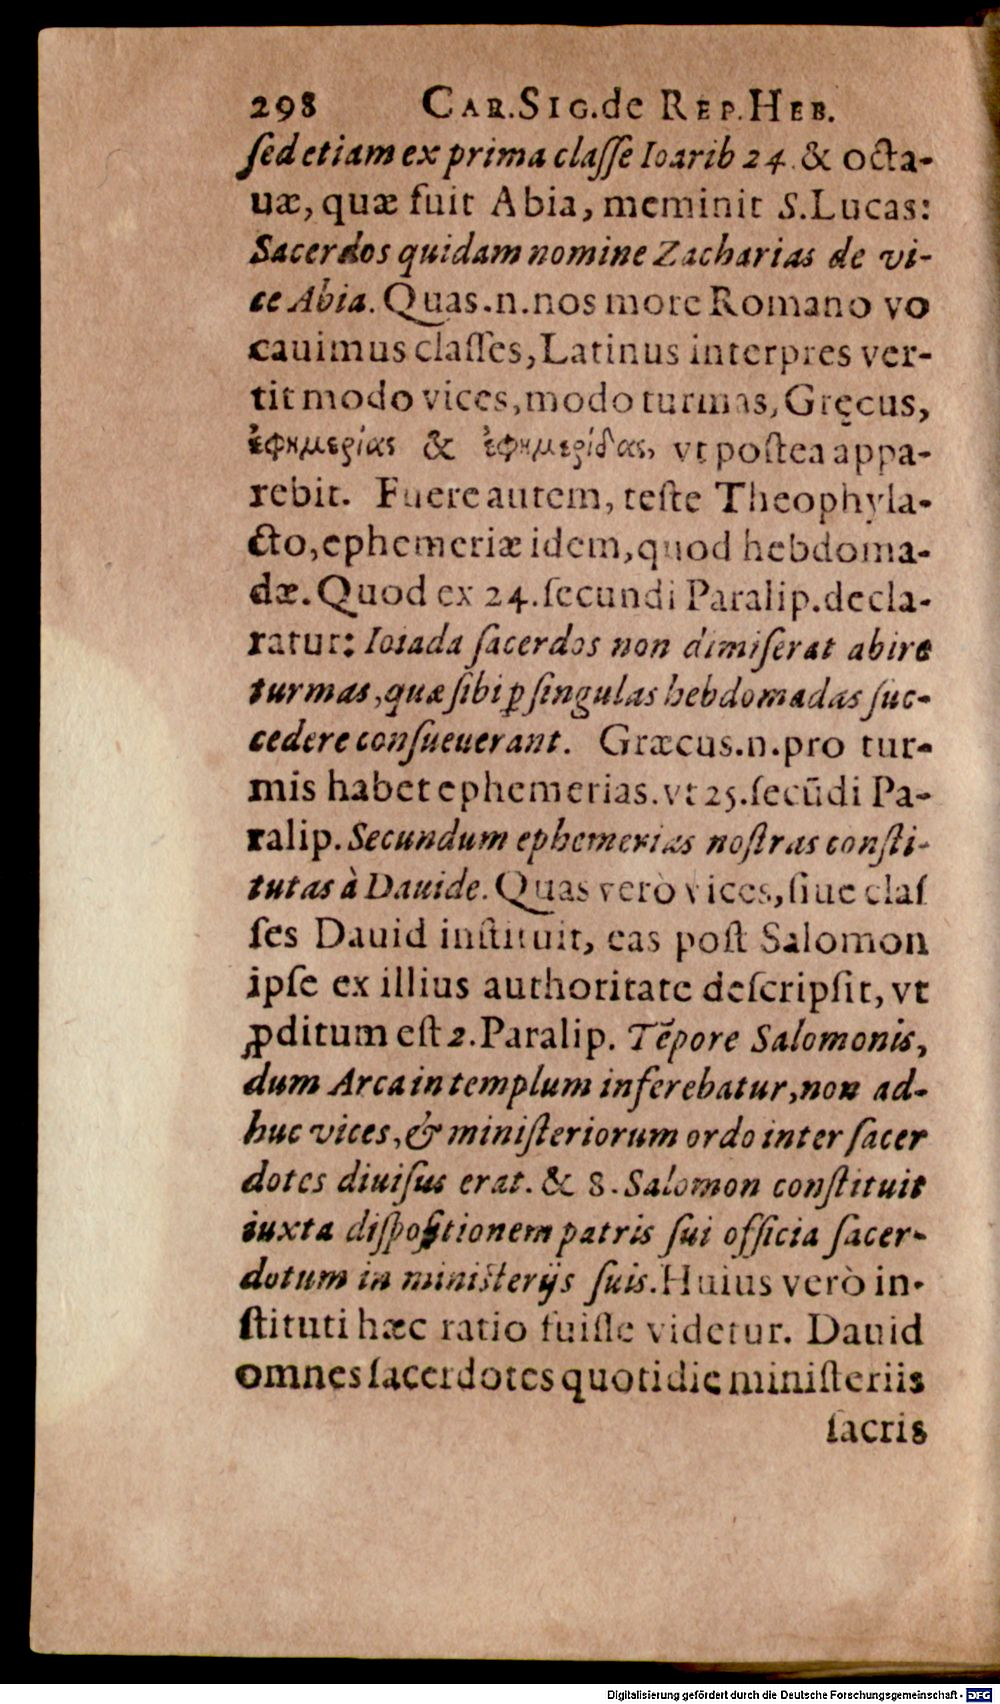 298 CAR.SIG.de REP.HEB.
ſed etiam ex prima claſſe Ioarib 24. & octa-
uæ, quæ fuit Abia, meminit S.Lucas:
Sacerdos quidam nomine Zacharias de vi-
ce Abia. Quas.n.nos more Romano vo
cauimus claſſes, Latinus interpres ver-
tit modo vices, modo turmas, Gręcus,
ἐφημερίας & ἐφημερίδας, vt poſtea appa-
rebit. Fuere autem, teſte Theophyla-
cto, ephemeriæ idem, quod hebdoma-
dæ. Quod ex 24.ſecundi Paralip.decla-
ratur: Ioiada ſacerdos non dimiſerat abire
turmas, quæ ſibi ꝑ ſingulas hebdomadas ſuc-
cedere conſueuerant. Græcus.n.pro tur-
mis habet ephemerias.vt 25.ſecũdi Pa-
ralip. Secundum ephemerias noſtras conſti-
tutas à Dauide. Quas verò vices, ſiue claſ
ſes Dauid inſtituit, eas poſt Salomon
ipſe ex illius authoritate deſcripſit, vt
ꝓditum eſt 2.Paralip. Tẽpore Salomonis,
dum Arca in templum inferebatur, non ad-
huc vices, & miniſteriorum ordo inter ſacer
dotes diuiſus erat. & 8. Salomon conſtituit
iuxta diſpoſitionem patris ſui officia ſacer-
dotum in miniſterijs ſuis. Huius verò in-
ſtituti hæc ratio fuiſſe videtur. Dauid
omnes ſacerdotes quotidie miniſteriis
ſacris
Digitalisierung gefördert durch die Deutsche Forschungsgemeinschaft - DFG